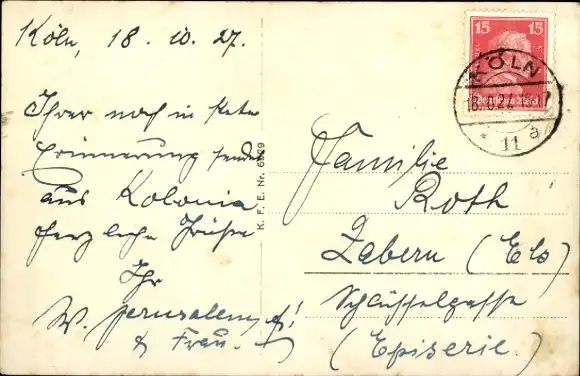 Köln, 18. 10. 27.
Ihrer noch in
Erinnerung senden
aus Kolonia
herzliche Grüße
Ihr
W. Jerusalem
& Frau.
K. F. E. Nr. 6929
15 15
Deutsches Reich
KÖLN
11 a
Familie
Roth
Zabern (Els)
Schlüsselgasse
(Episerie.)